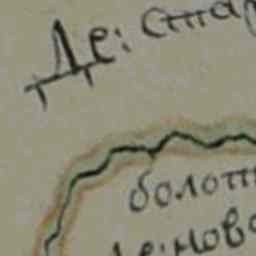 Де: стар
болот
Де: ново